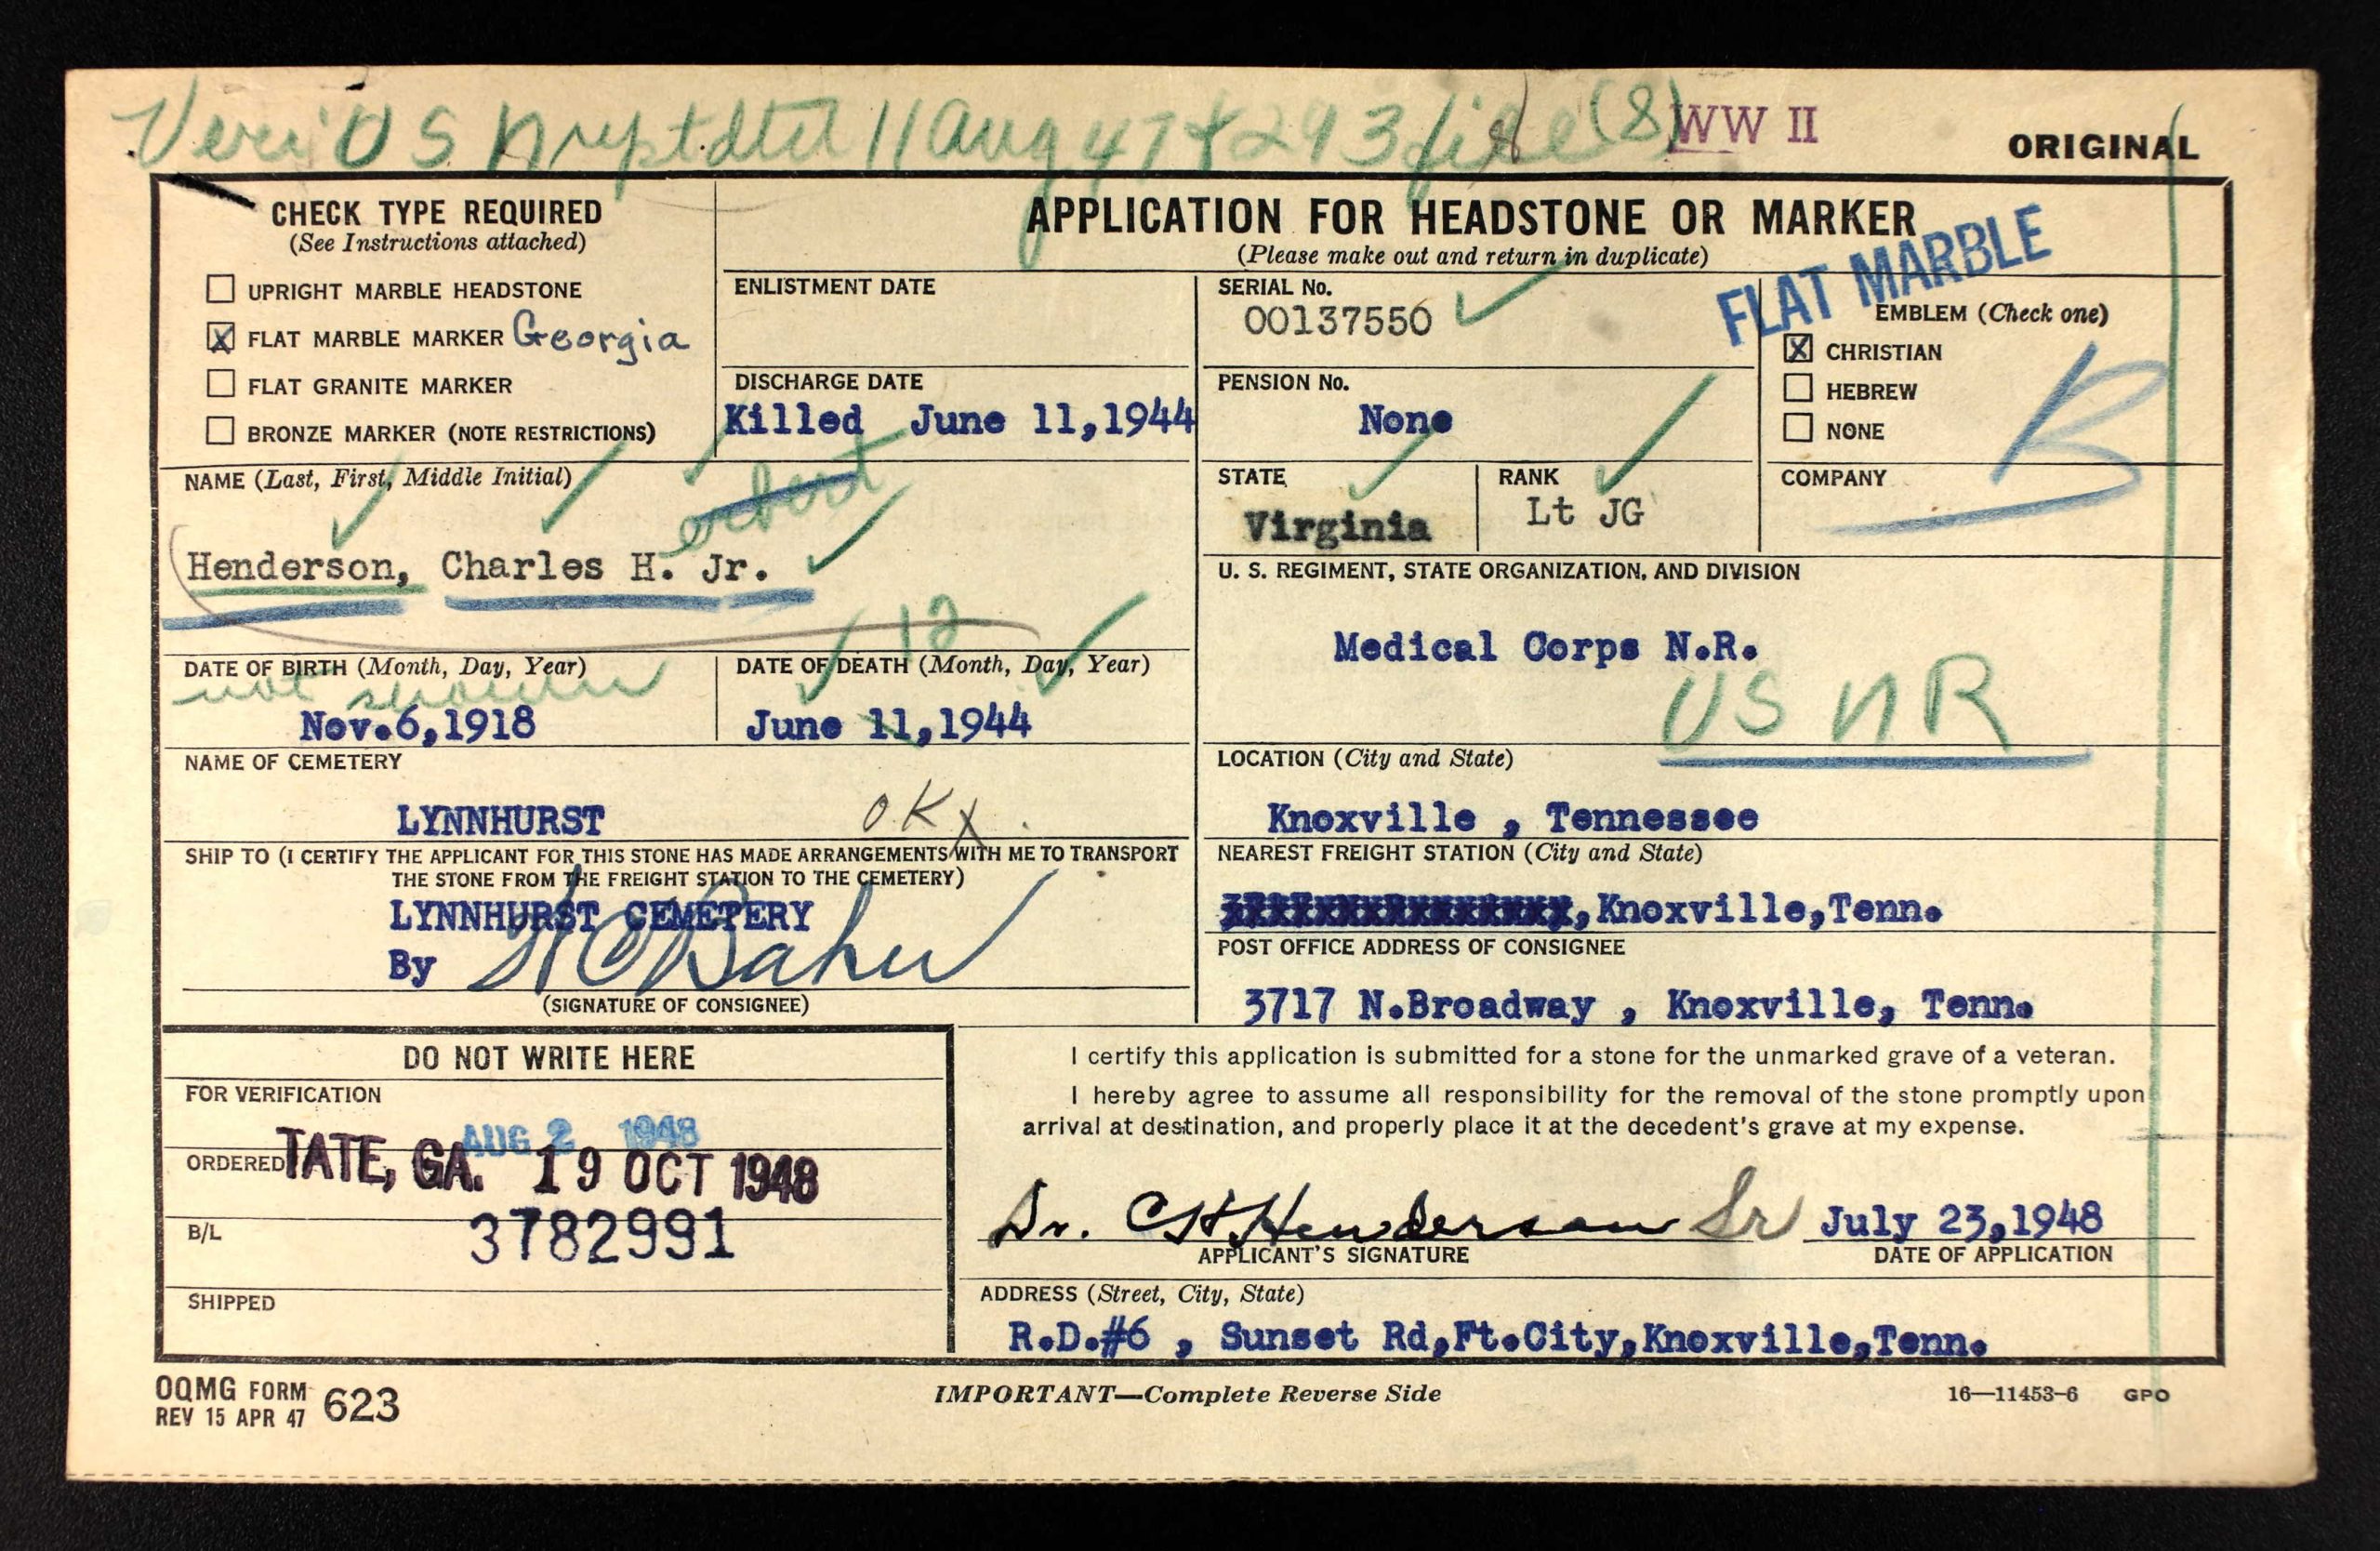 Veri US N rept dtd 11 Aug 47 & 293 file (8)
WW II
ORIGINAL
CHECK TYPE REQUIRED
(See Instructions attached)
UPRIGHT MARBLE HEADSTONE
X FLAT MARBLE MARKER Georgia
FLAT GRANITE MARKER
BRONZE MARKER (NOTE RESTRICTIONS)
APPLICATION FOR HEADSTONE OR MARKER
(Please make out and return in duplicate)
FLAT MARBLE
ENLISTMENT DATE
DISCHARGE DATE
Killed June 11,1944
SERIAL No.
00137550
PENSION No.
None
EMBLEM (Check one)
X CHRISTIAN
HEBREW
NONE
B
NAME (Last, First, Middle Initial)
erbert
Henderson, Charles H. Jr.
STATE
Virginia
RANK
Lt JG
COMPANY
U. S. REGIMENT, STATE ORGANIZATION, AND DIVISION
Medical Corps N.R.
USNR
DATE OF BIRTH (Month, Day, Year)
not shown
Nov.6,1918
12
DATE OF DEATH (Month, Day, Year)
June 11,1944
NAME OF CEMETERY
LYNNHURST
OK
LOCATION (City and State)
Knoxville , Tennessee
SHIP TO (I CERTIFY THE APPLICANT FOR THIS STONE HAS MADE ARRANGEMENTS WITH ME TO TRANSPORT
THE STONE FROM THE FREIGHT STATION TO THE CEMETERY)
LYNNHURST CEMETERY
By
(SIGNATURE OF CONSIGNEE)
NEAREST FREIGHT STATION (City and State)
,Knoxville,Tenn.
POST OFFICE ADDRESS OF CONSIGNEE
3717 N.Broadway , Knoxville, Tenn.
DO NOT WRITE HERE
FOR VERIFICATION
AUG 2 1948
ORDERED TATE, GA. 19 OCT 1948
B/L 3782991
SHIPPED
I certify this application is submitted for a stone for the unmarked grave of a veteran.
I hereby agree to assume all responsibility for the removal of the stone promptly upon
arrival at destination, and properly place it at the decedent's grave at my expense.
Dr. C H Henderson Sr July 23,1948
APPLICANT'S SIGNATURE
DATE OF APPLICATION
ADDRESS (Street, City, State)
R.D.#6 , Sunset Rd,Ft.City,Knoxville,Tenn.
OQMG FORM 623
REV 15 APR 47
IMPORTANT—Complete Reverse Side
16—11453-6 GPO